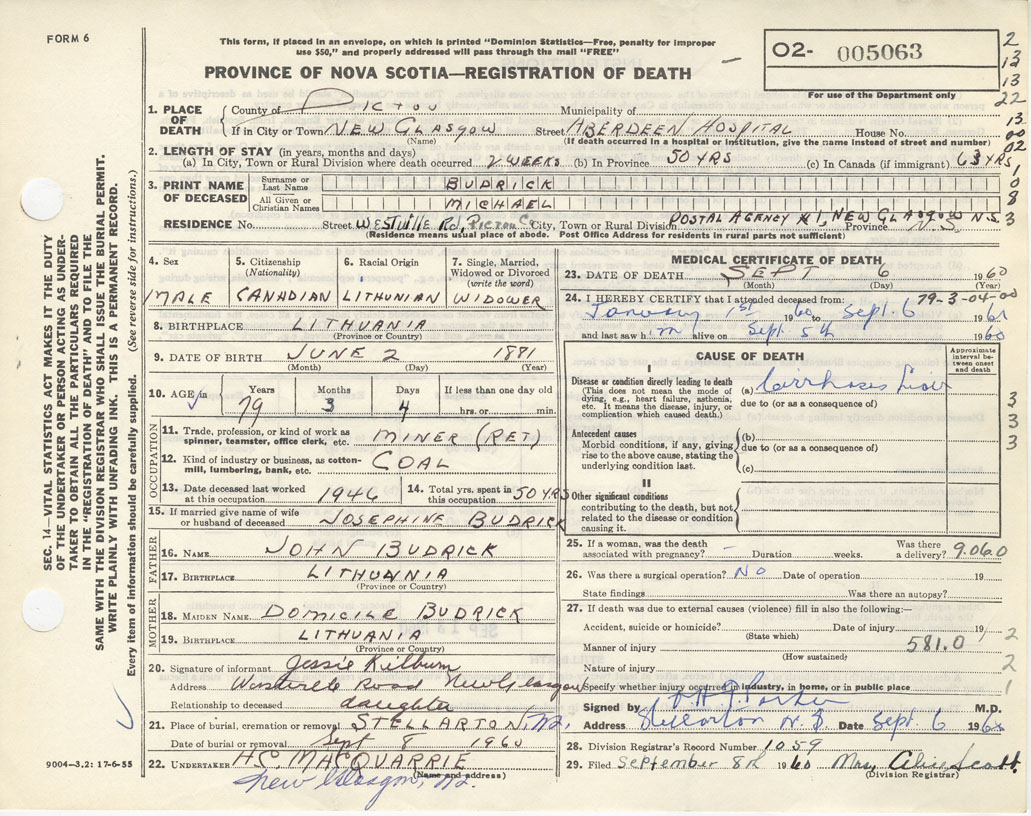 FORM 6
This form, if placed in an envelope, on which is printed "Dominion Statistics—Free, penalty for improper
use $50," and properly addressed will pass through the mail "FREE"
O2- 005063
For use of the Department only
PROVINCE OF NOVA SCOTIA—REGISTRATION OF DEATH
2
13
13
22
13
00
02
1
0
8
3
SEC. 14—VITAL STATISTICS ACT MAKES IT THE DUTY
OF THE UNDERTAKER OR PERSON ACTING AS UNDER-
TAKER TO OBTAIN ALL THE PARTICULARS REQUIRED
IN THE "REGISTRATION OF DEATH" AND TO FILE THE
SAME WITH THE DIVISION REGISTRAR WHO SHALL ISSUE THE BURIAL PERMIT.
WRITE PLAINLY WITH UNFADING INK. THIS IS A PERMANENT RECORD.
Every item of information should be carefully supplied. (See reverse side for instructions.)
1. PLACE OF DEATH
County of PICTOU Municipality of
If in City or Town NEW GLASGOW Street ABERDEEN HOSPITAL House No.
(Name) (If death occurred in a hospital or institution, give the name instead of street and number)
2. LENGTH OF STAY (in years, months and days)
(a) In City, Town or Rural Division where death occurred 2 WEEKS (b) In Province 50 YRS (c) In Canada (if immigrant) 63 YRS
3. PRINT NAME OF DECEASED
Surname or Last Name BUDRICK
All Given or Christian Names MICHAEL
RESIDENCE No. Street WESTVILLE Rd, PICTOU Co. City, Town or Rural Division POSTAL AGENCY #1, NEW GLASGOW N.S. Province N.S.
(Residence means usual place of abode. Post Office Address for residents in rural parts not sufficient)
4. Sex
MALE
5. Citizenship (Nationality)
CANADIAN
6. Racial Origin
LITHUNIAN
7. Single, Married, Widowed or Divorced (write the word)
WIDOWER
8. BIRTHPLACE LITHUANIA
(Province or Country)
9. DATE OF BIRTH JUNE 2 1881
(Month) (Day) (Year)
10. AGE in Years 79 Months 3 Days 4 If less than one day old hrs. or min.
OCCUPATION
11. Trade, profession, or kind of work as spinner, teamster, office clerk, etc. MINER (RET)
12. Kind of industry or business, as cotton-mill, lumbering, bank, etc. COAL
13. Date deceased last worked at this occupation 1946
14. Total yrs. spent in this occupation 50 YRS
15. If married give name of wife or husband of deceased JOSEPHINE BUDRICK
FATHER
16. NAME JOHN BUDRICK
17. BIRTHPLACE LITHUNNIA
(Province or Country)
MOTHER
18. MAIDEN NAME DOMICILE BUDRICK
19. BIRTHPLACE LITHUANIA
(Province or Country)
20. Signature of informant Jessie Kilburn
Address Westville Road New Glasgow
Relationship to deceased daughter
21. Place of burial, cremation or removal STELLARTON, N.S.
Date of burial or removal Sept 8 1960
22. UNDERTAKER HC MACQUARRIE
(Name and address)
New Glasgow, N.S.
9004—3.2: 17-6-55
MEDICAL CERTIFICATE OF DEATH
23. DATE OF DEATH SEPT 6 1960
(Month) (Day) (Year)
24. I HEREBY CERTIFY that I attended deceased from: 79-3-04-00
January 1st 1960 to Sept. 6 1960
and last saw him alive on Sept. 5th 1960
CAUSE OF DEATH
Approximate interval between onset and death
I
Disease or condition directly leading to death
(This does not mean the mode of dying, e.g., heart failure, asthenia, etc. It means the disease, injury, or complication which caused death.)
(a) Cirrhoses Liver
due to (or as a consequence of)
Antecedent causes
Morbid conditions, if any, giving rise to the above cause, stating the underlying condition last.
(b)
due to (or as a consequence of)
(c)
3
3
3
3
II
Other significant conditions
contributing to the death, but not related to the disease or condition causing it.
25. If a woman, was the death associated with pregnancy? – Duration weeks. Was there a delivery? 9.06.0
26. Was there a surgical operation? NO Date of operation 19
State findings Was there an autopsy?
27. If death was due to external causes (violence) fill in also the following:—
Accident, suicide or homicide? Date of injury 19
(State which)
Manner of injury 581.0
(How sustained)
Nature of injury
Specify whether injury occurred in industry, in home, or in public place
2
2
1
Signed by M.D.
Address Stellarton N.S. Date Sept. 6 1960
28. Division Registrar's Record Number 1059
29. Filed September 8th 1960 Mrs. Alice Scott
(Division Registrar)